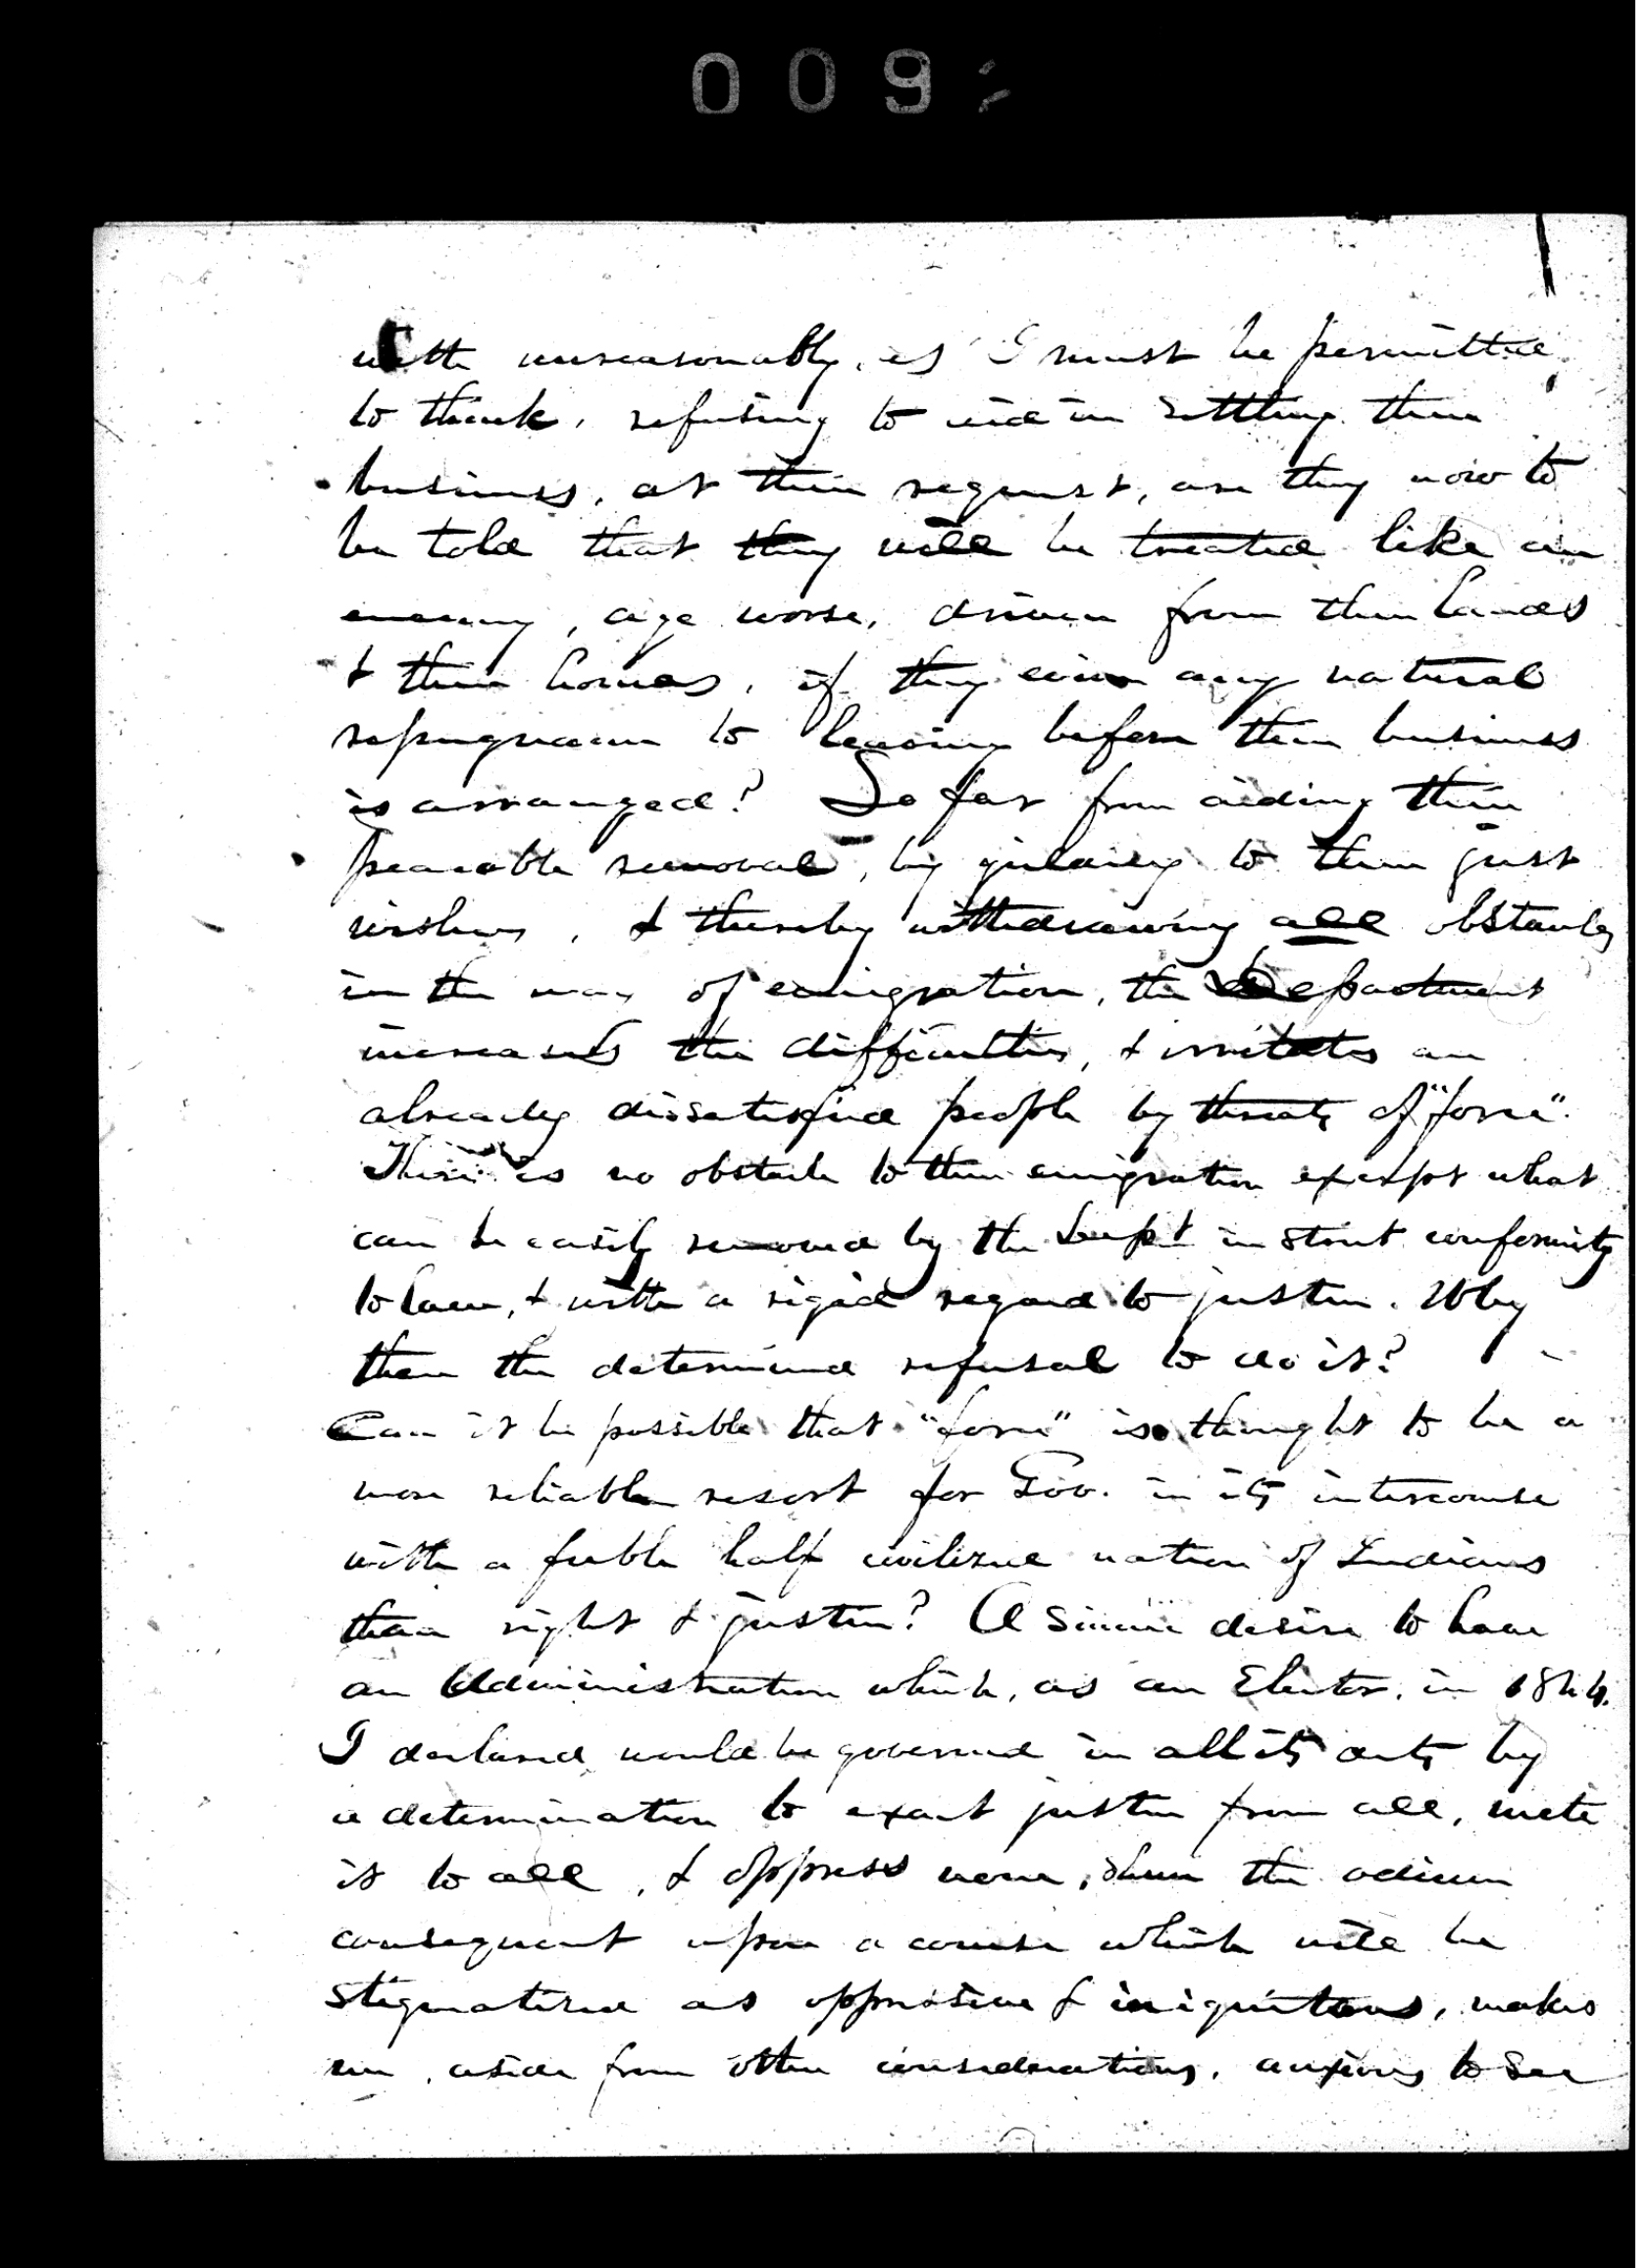 009
with unreasonably, as I must be permitted
to think, refusing to aid in settling their
business, at their request, are they now to
be told that they will be treated like an
enemy, aye worse, driven from their lands
& their homes, if they evince any natural
repugnance to leaving before their business
is arranged? So far from aiding their
peaceable removal, by yielding to their just
wishes, & thereby withdrawing all obstacles
in the way of emigration, the Department
increases the difficulties, & irritates an
already dissatisfied people by threats of "force".
There is no obstacle to their emigration except what
can be easily removed by the Dept in strict conformity
to law, & with a rigid regard to justice. Why
then the determined refusal to do it?
Can it be possible that "force" is thought to be a
more reliable resort for Gov. in its intercourse
with a feeble half civilized nation of Indians
than right & justice? A sincere desire to have
an Administration which, as an Elector, in 1844.
I declared would be governed in all its acts by
a determination to exact justice from all, mete
it to all, & oppress none, shun the odium
consequent upon a course which will be
stigmatized as oppressive & iniquitous, makes
me, aside from other considerations, anxious to see